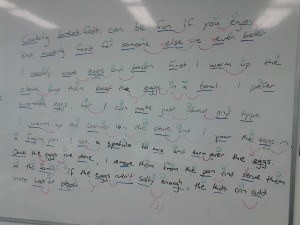 Cooking breakfast can be fun if you enjoy
and making food for someone else is even better.
I usually cook eggs and bacon. First, I warm up the
stove and then beat the eggs in a bowl. I prefer
eggs, but I can make just about any type
I warm up the burner on the stove and I pour the eggs in
a frying pan. I use a spatula to mix and turn over the eggs.
Once the eggs are done, I remove them from the pan and serve them
to the family. If the eggs aren't salty enough, the kids can add
more salt or pepper.